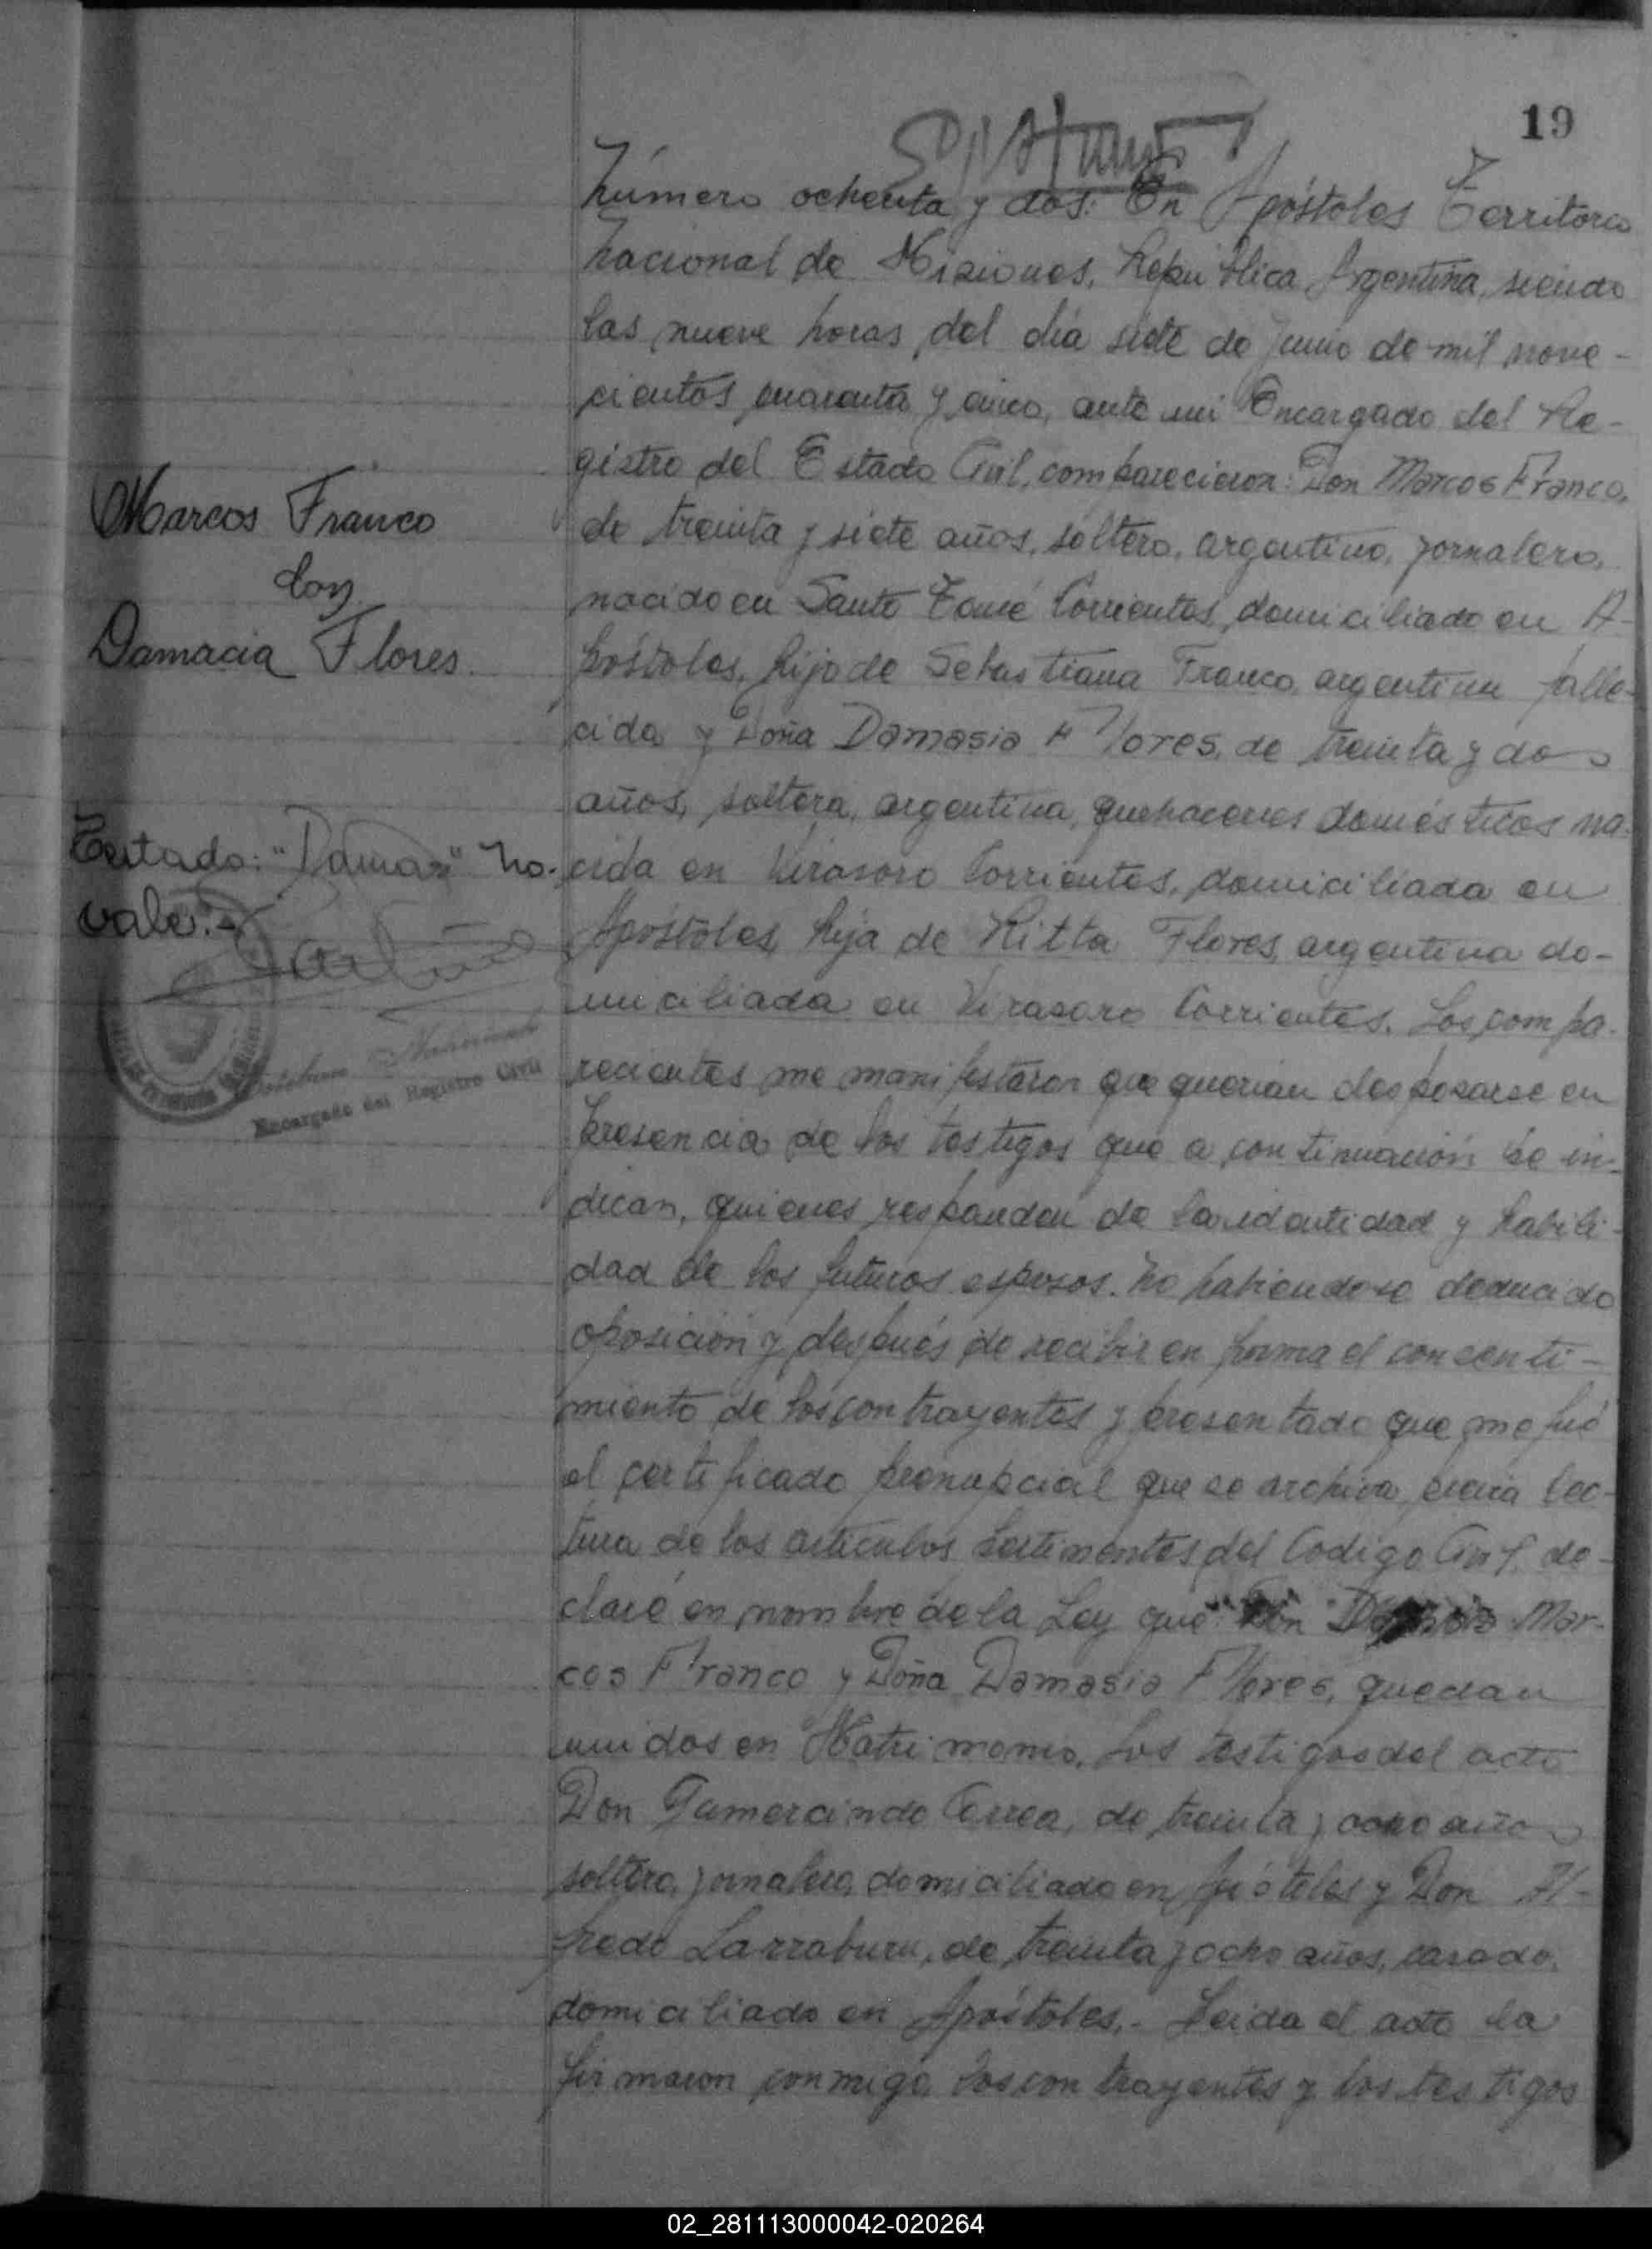 19
Número ochenta y dos: En Apóstoles Territorio
Nacional de Misiones, República Argentina, siendo
las nueve horas del día siete de junio de mil nove-
cientos cuarenta y cinco, ante mi Encargado del Re-
gistro del Estado Civil, comparecieron: Don Marcos Franco,
de treinta y siete años, soltero, argentino, jornalero,
nacido en Santo Tomé Corrientes, domiciliado en A-
póstoles, hijo de Sebastiana Franco, argentina falle-
cida y Doña Damasia Flores, de treinta y dos
años, soltera, argentina, quehaceres domésticos na-
cida en Virasoro Corrientes, domiciliada en
Apóstoles, hija de Ritta Flores, argentina do-
miciliada en Virasoro Corrientes. Los compa-
recientes me manifestaron que querian desposarse en
presencia de los testigos que a continuación se in-
dican, quienes responden de la identidad y habili-
dad de los futuros esposos. No habiendose deducido
oposición y después de recibir en forma el consenti-
miento de los contrayentes y presentado que me fué
el certificado prenupcial que se archiva, previa lec-
tura de los artículos pertinentes del Codigo Civil, de-
claré en nombre de la Ley que: Don Mar-
cos Franco y Doña Damasia Flores, quedan
unidos en Matrimonio. Los testigos del acto
Don Gumercindo Correa, de treinta y ocho años
soltero, jornalero, domiciliado en Apóstoles y Don Al-
fredo Larraburu, de treinta y ocho años, casado,
domiciliado en Apóstoles.- Leida el acta la
firmaron conmigo los contrayentes y los testigos
Marcos Franco
con
Damacia Flores
Testado: "Damas" No
vale.-
Encargado del Registro Civil
02_281113000042-020264